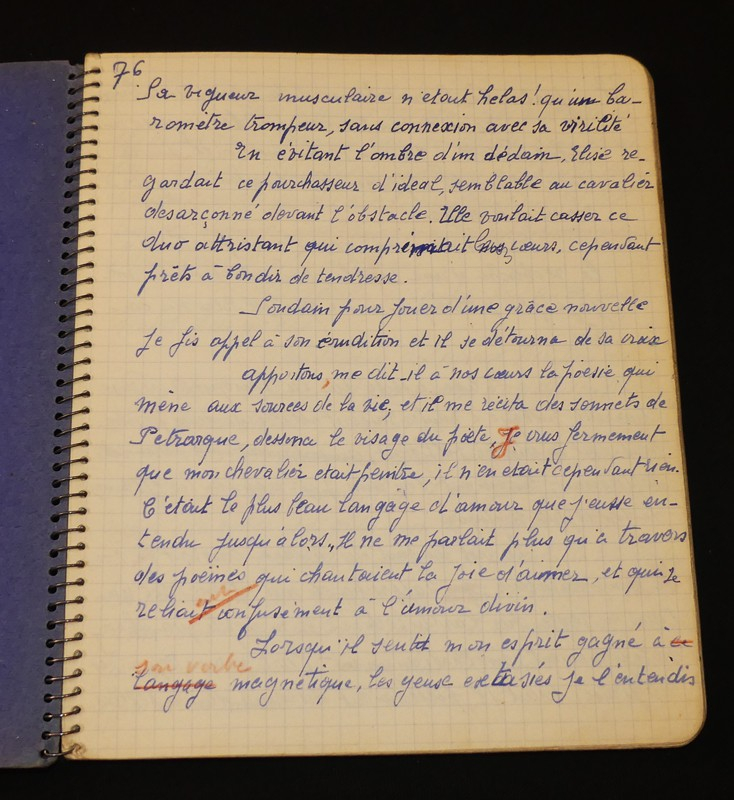 76
Sa vigueur musculaire n'etait helas! qu'un ba-
romètre trompeur, sans connexion avec sa virilité
En évitant l'ombre d'un dédain, Elise re-
gardait ce pourchasseur d'ideal, semblable au cavalier
desarçonné devant l'obstacle. Elle voulait casser ce
duo attristant qui comprimait leurs cœurs, cependant
prêts à bondir de tendresse.
Soudain pour jouer d'une grâce nouvelle
je fis appel à son érudition et il se détourna de sa croix
apportons, me dit-il à nos cœurs la poèsie qui
mène aux sources de la vie, et il me récita des sonnets de
Petrarque, dessena le visage du poète, Je crus fermement
que mon chevalier etait peintre, il n'en etait cependant rien.
C'était le plus beau langage d'amour que j'eusse en-
tendu jusqu'alors, Il ne me parlait plus qu'à travers
des poèmes qui chantaient la joie d'aimer, et qui se
reliait confusément à l'amour divin.
Lorsqu'il sentit mon esprit gagné à ce
son verbe
langage magnétique, les yeux extasiés je l'entendis